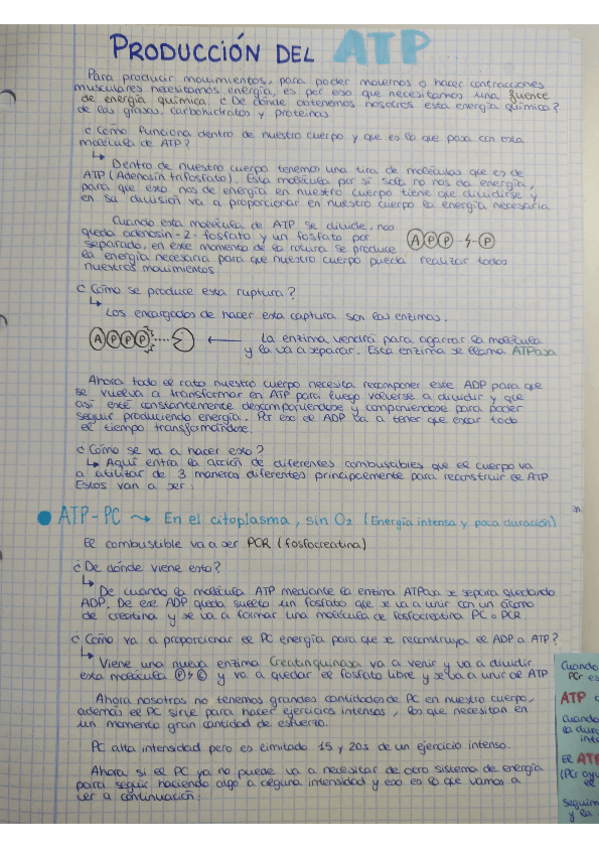 PRODUCCIÓN DEL ATP
Para producir movimientos, para poder movernos o hacer contracciones
musculares necesitamos energía, es por eso que necesitamos una fuente
de energía química. ¿De dónde obtenemos nosotros esta energía química?
de las grasas, carbohidratos y proteínas.
¿Cómo funciona dentro de nuestro cuerpo y que es lo que pasa con esta
molécula de ATP?
↳ Dentro de nuestro cuerpo tenemos una tira de moléculas que es de
ATP (Adenosín trifosfato). Esta molécula por si sola no nos da energía,
para que esto nos de energía en nuestro cuerpo tiene que dividirse y
en su división va a proporcionar en nuestro cuerpo la energía necesaria
Cuando esta molécula de ATP se divide, nos
queda adenosin-2-fosfato y un fosfato por
separado, en este momento de la rotura se produce
la energía necesaria para que nuestro cuerpo pueda realizar todos
nuestros movimientos.
A P P P
¿Cómo se produce esta ruptura?
↳ Los encargados de hacer esta captura son las enzimas.
A P P P
← La enzima vendrá para agarrar la molécula
y la va a separar. Esta enzima se llama ATPasa
Ahora todo el rato nuestro cuerpo necesita recomponer este ADP para que
se vuelva a transformar en ATP para luego volverse a dividir y que
así esté constantemente descomponiendose y componiendose para poder
seguir produciendo energía. Por eso el ADP va a tener que estar todo
el tiempo transformándose.
¿Cómo se va a hacer esto?
↳ Aquí entra la acción de diferentes combustibles que el cuerpo va
a utilizar de 3 maneras diferentes principalmente para reconstruir el ATP
Estos van a ser:
● ATP-PC → En el citoplasma, sin O2 (Energía intensa y poca duración)
El combustible va a ser PCR (fosfocreatina)
¿De dónde viene esto?
↳ De cuando la molécula ATP mediante la enzima ATPasa se separa quedando
ADP. De ese ADP queda suelto un fosfato que se va a unir con un átomo
de creatina y se va a formar una molécula de fosfocreatina PC o PCR
¿Cómo va a proporcionar el PC energía para que se reconstruya el ADP a ATP?
↳ Viene una nueva enzima Creatinquinasa va a venir y va a dividir
esta molécula P C y va a quedar el fosfato libre y se va a unir al ATP
Ahora nosotros no tenemos grandes cantidades de PC en nuestro cuerpo,
además el PC sirve para hacer ejercicios intensos, los que necesitan en
un momento gran cantidad de esfuerzo.
PC alta intensidad pero es limitado 15 y 20s de un ejercicio intenso.
Ahora si el PC ya no puede va a necesitar de otro sistema de energía
para seguir haciendo algo a alguna intensidad y eso es lo que vamos a
ver a continuación:
Cuando
PCr es
ATP
cuando
la dura
inte
El ATP
(PCr ayu
el
Seguim
y la